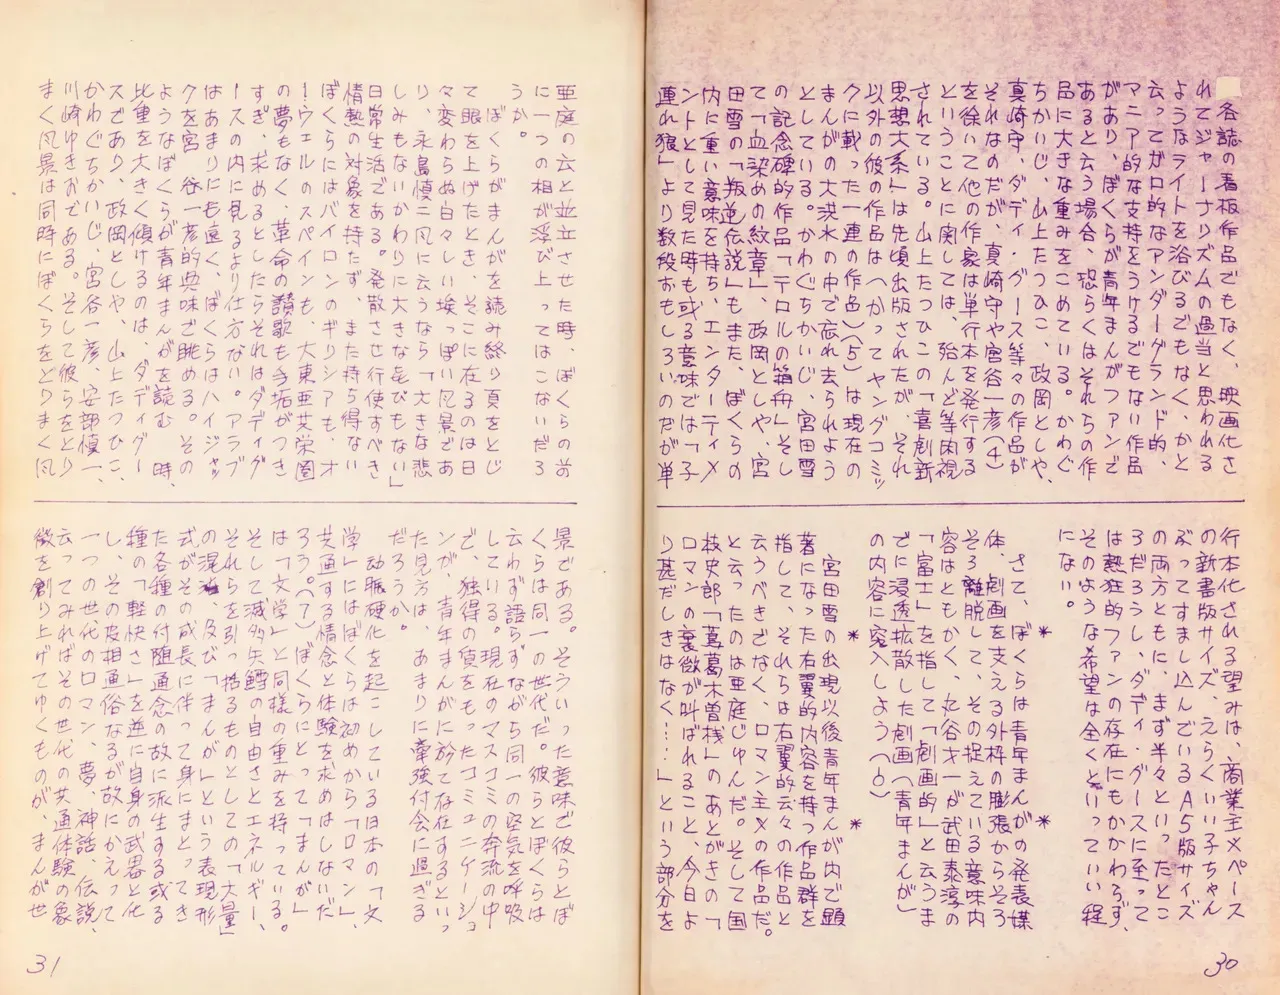 各誌の看板作品でもなく、映画化さ
れてジャーナリズムの過当と思われる
ようなライトを浴びるでもなく、かと
云ってガロ的なアンダーグランド的、
マニア的な支持をうけるでもない作品
があり、ぼくらが青年まんがファンで
あると云う場合、恐らくはそれらの作
品に大きな重みをこめている。かわぐ
ちかいじ、山上たつひこ、政岡としや、
真崎守、ダディ・グース等々の作品が
それなのだが、真崎守や宮谷一彦(4)
を徐いて他の作家は単行本を発行する
ということに関しては、殆んど等閑視
されている。山上たつひこの「喜劇新
思想大系」は先頃出版されたが、それ
以外の彼の作品はへかってヤングコミッ
クに載った一連の作品〉(5)は現在の
まんがの大洪水の中で忘れ去られよう
としている。かわぐちかいじ、宮田雪
の記念碑的作品「テロルの箱舟」そし
て「血染めの紋章」、政岡としや、宮
田雪の「叛逆伝説」もまた、ぼくらの
内に重い意味を持ち、エンターティメ
ントとして見た時も或る意味では「子
連れ狼」より数段おもしろいのだが単
行本化される望みは、商業主メペース
の新書版サイズ、えらくいい子ちゃん
ぶってすまし込んでいるA5版サイズ
の両方ともに、まず半々といったとこ
ろだろうし、ダディ・グースに至って
は熱狂的ファンの存在にもかかわらず、
そのような希望は全くといっていい程
にない。
＊　＊
さて、ぼくらは青年まんがの発表媒
体、劇画を支える外枠の膨張からそろ
そろ離脱して、その捉えている意味内
容はともかく、丸谷才一が武田泰淳の
「富士」を指して「劇画的」と云うま
でに浸透、拡散した劇画〈青年まんが〉
の内容に容入しよう(6)
＊　＊
宮田雪の出現以後青年まんが内で顕
著になった右翼的内容を持つ作品群を
指して、それらは右翼的云々の作品と
云うべきでなく、ロマン主メの作品だ。
と云ったのは亜庭じゅんだ。そして国
枝史郎「蔦葛木曽桟」のあとがきの「
ロマンの衰微が叫ばれること、今日よ
り甚だしきはなく……」という部分を
30
亜庭の云と並立させた時、ぼくらの前
に一つの相が浮び上ってはこないだろ
うか。
ぼくらがまんがを読み終り頁をとじ
て眼を上げたとき、そこに在るのは日
々変わらぬ白々しい埃っぽい風景であ
り、永島慎二風に云うなら「大きな悲
しみもないかわりに大きな㐂びもない」
日常生活である。発散させ行使すべき
情熱の対象を持たず、また持ち得ない
ぼくらにはバイロンのギリシアも、オ
ーウェルのスペインも、大東亜共栄圏
の夢もなく、革命の讃歌も手垢がつき
すぎ、求めるとしたらそれはダディグ
ースの内に見るより仕方ない。アラブ
はあまりにも遠く、ぼくらはハイジャッ
クを宮谷一彦的興味で眺める。その
ようなぼくらが青年まんがを読む時、
比重を大きく傾けるのは、ダディグー
スであり、政岡としや、山上たつひこ、
かわぐちかいじ、宮谷一彦、安部慎一、
川崎ゆきおである。そして彼らをとり
まく風景は同時にぼくらをとりまく風
景である。そういった意味で彼らとぼ
くらは同一の世代だ。彼らとぼくらは
云わず語らずながら同一の空気を呼吸
している。現在のマスコミの奔流の中
で、独得の値をもったコミュニケーショ
ンが、青年まんがに於て存在するといっ
た見方は、あまりに牽強付会に過ぎる
だろうか。
動脈硬化を起こしている日本の「文
学」にはぼくらは初めから「ロマン」、
共通する情念と体験を求めはしないだ
ろう。(7)ぼくらにとって「まんが」
は「文学」と同様の重みを持っている。
そして滅多矢鱈の自由さとエネルギー、
それらを引っ括るものとしての「大量」
の混淆、及び「まんが」という表現形
式がその成長に伴って身にまとってき
た各種の付随通念の故に派生する或る
種の「軽快さ」を逆に自身の武器と化
し、その皮相通俗なるが故にかえって
一つの世代のロマン、夢、神話、伝説、
云ってみればその世代の共通体験の象
徴を創り上げてゆくものが、まんが世
31